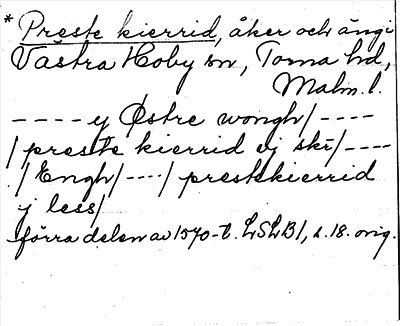 * Preste kierrid, åker och äng i
Västra Hoby sn, Torna hd,
Malm. l.
- - - - y Østre wongh/ - - - -
/ preste kierrid ij skr/ - - - -
/ Engh/ - - - - / prestkkierrid
j less/
förra delen av 1570-t. LSLB1, s. 18. orig.